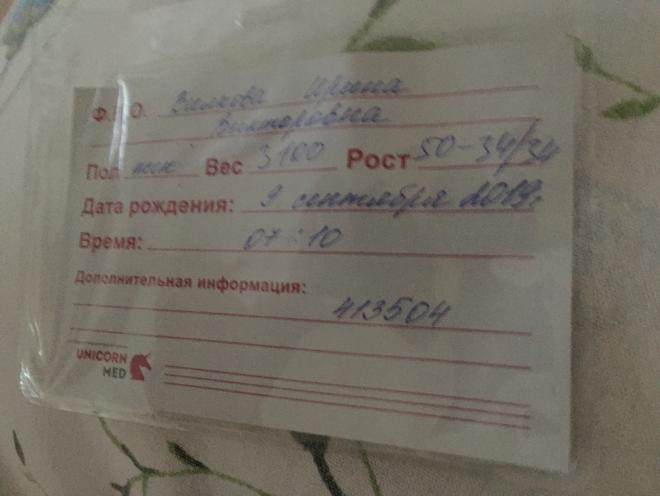 Ф.И.О. Вилкова Ирина
Викторовна
Пол жен Вес 3100 Рост 50-34/34
Дата рождения: 9 сентября 2019г.
Время: 07:10
Дополнительная информация:
413504
UNICORN
MED